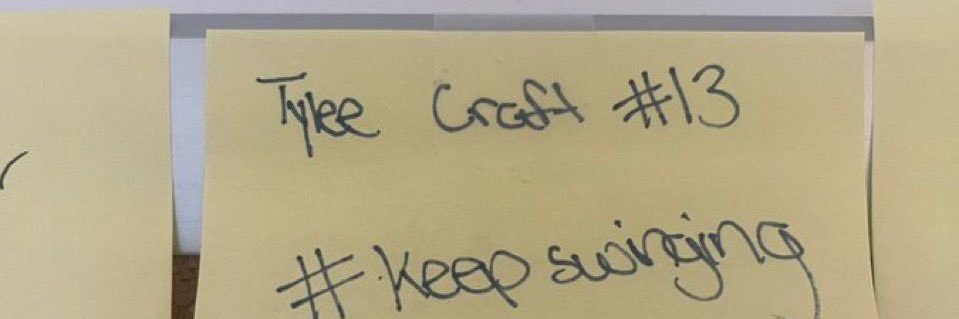 Tylee Craft #13
#keepswinging